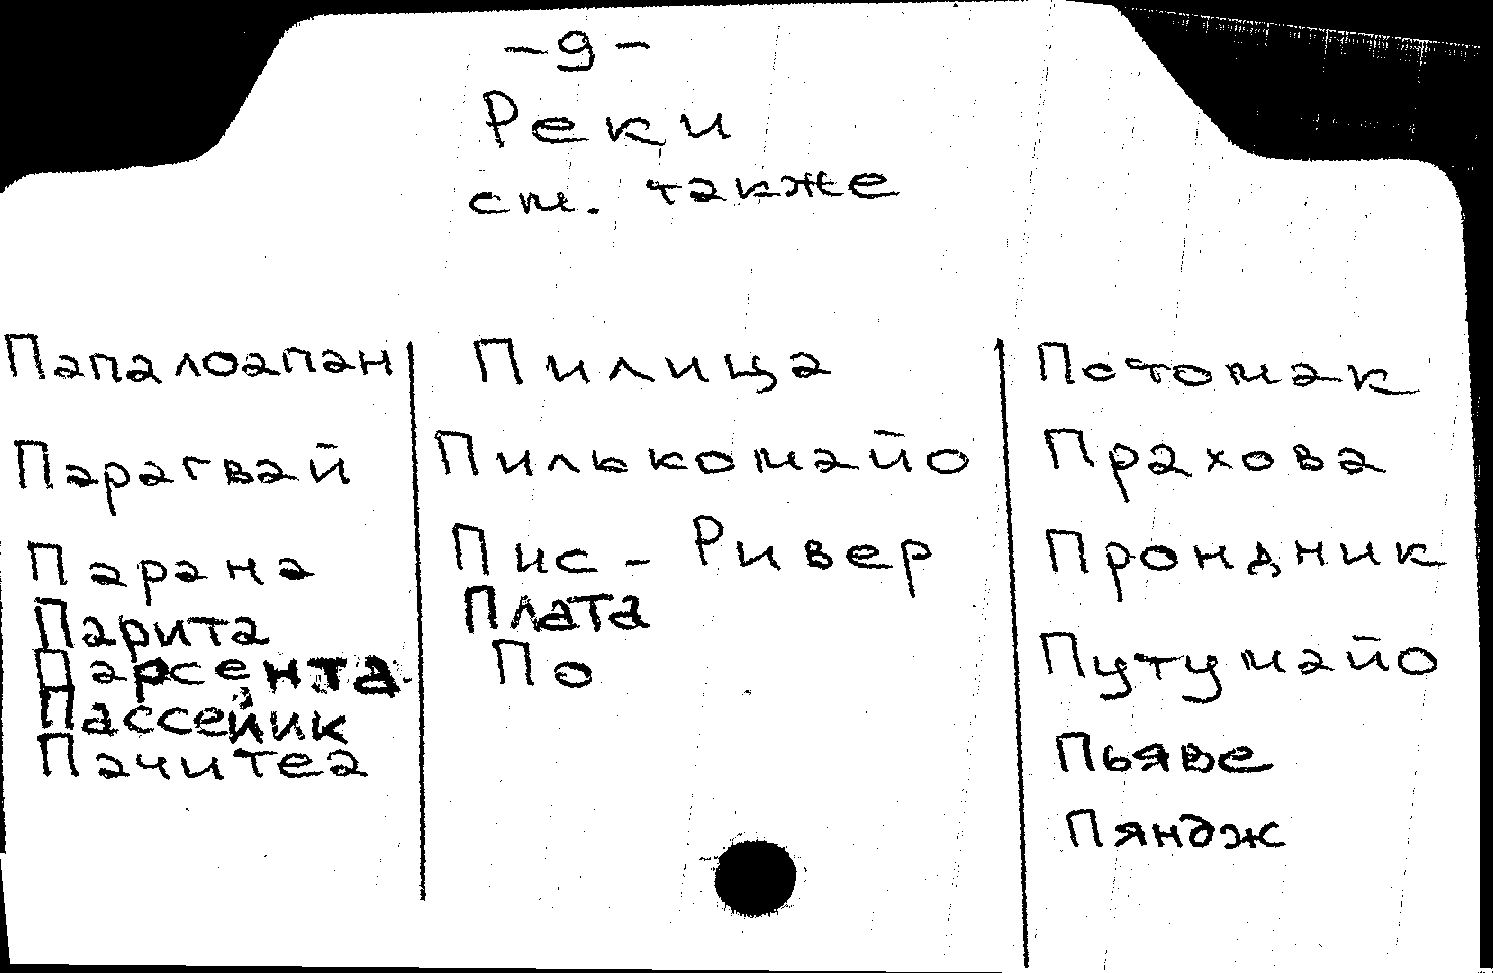 - 9 -
Реки
см. также
Папалоапан
Парагвай
Парана
Парита
Парсента
Пассейик
Пачитеа
Пилица
Пилькомайо
Пис - Ривер
Плата
По
Потомак
Прахова
Прондник
Путумайо
Пьяве
Пяндж